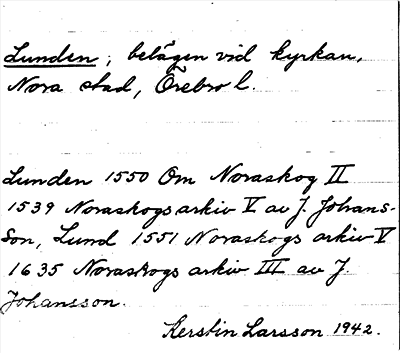 Lunden, belägen vid kyrkan,
Nora stad, Örebro l.
Lunden 1550 Om Noraskog II
1539 Noraskogs arkiv V av J. Johans-
son, Lund 1551 Noraskogs arkiv V
1635 Noraskogs arkiv III av J.
Johansson.
Kerstin Larsson 1942.